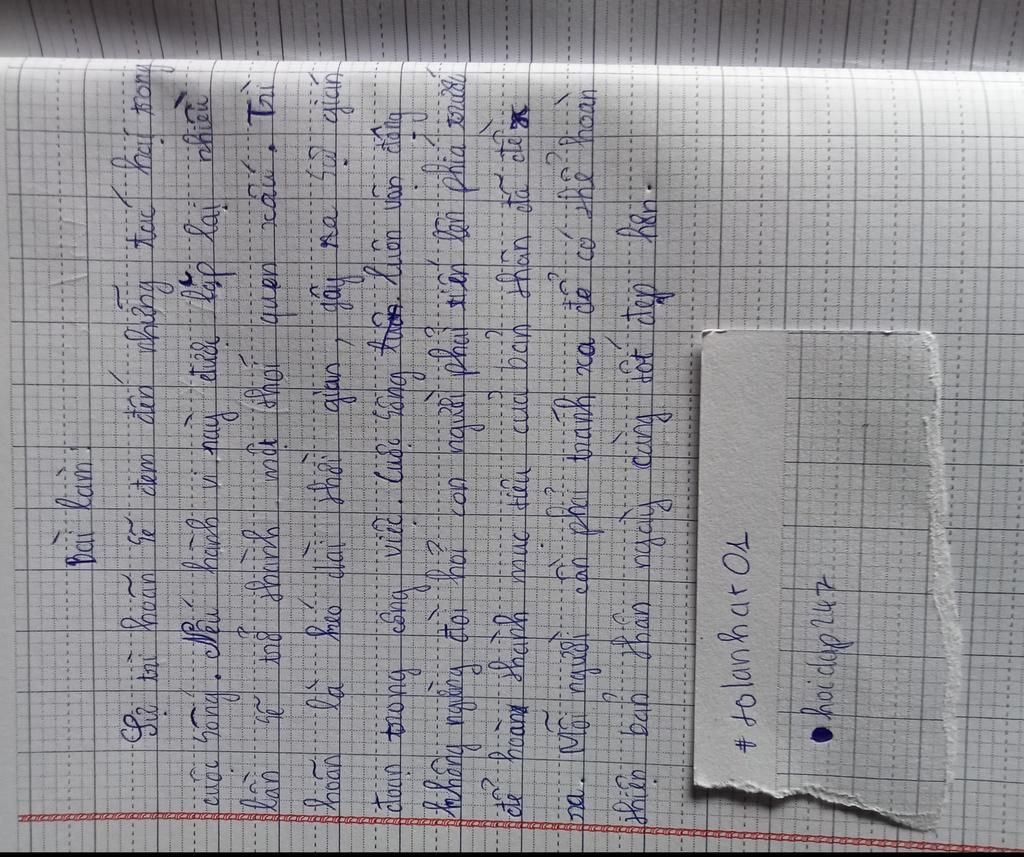 Bài làm:
Sự trì hoãn sẽ đem đến những tác hại trong
cuộc sống. Nếu hành vi này được lặp lại nhiều
lần sẽ trở thành một thói quen xấu. Trì
hoãn là kéo dài thời gian, gây ra sự gián
đoạn trong công việc. Cuộc sống luôn vận động
không ngừng đòi hỏi con người phải tiến lên phía trước
để hoàn thành mục tiêu của bản thân đã đề
ra. Mỗi người cần phải tránh xa để có thể hoàn
thiện bản thân ngày càng tốt đẹp hơn.
# tolanhat01
hoidap247